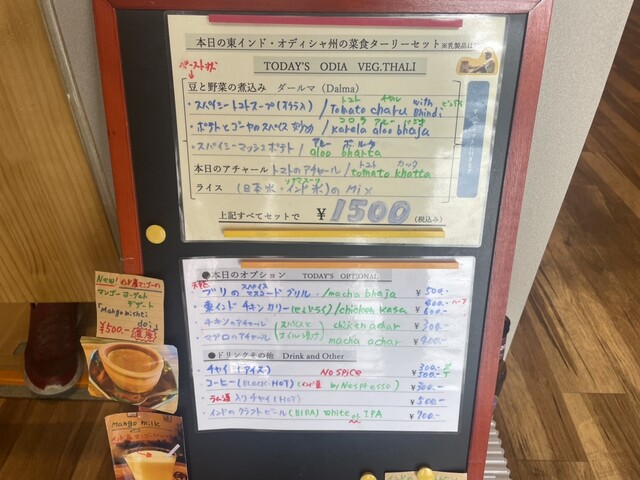 本日の東インド・オディシャ州の菜食ターリーセット※乳製品は
TODAY'S ODIA VEG.THALI
豆と野菜の煮込み ダールマ (Dalma)
・スパイシートマトスープ(オクラ入) / Tomato charu with Bhindi
トマト チャル ビンディ
・ポテトとゴーヤのスパイス炒め / karela aloo bhaja
コロラ アルー バジャ
・スパイシーマッシュポテト / aloo bharta
アルー
本日のアチャール トマトのアチャール / tomato khatta
トマト カッタ
ライス (日本米・インド米)のMix
上記すべてセットで ¥1500 (税込み)
●本日のオプション TODAY'S OPTIONAL
ブリのスパイスマスタードグリル / macha bhaja ¥500-
東インドチキンカリー / chicken kasa ¥600- 400- ハーフ
チキンのアチャール chicken achar ¥300-
マグロのアチャール macha achar ¥400-
(スパイスとオイル漬け)
●ドリンクその他 Drink and Other
チャイ NO SPICE ¥300- 500-
コーヒー (BLACK HOT) by Nespresso) ¥300-
ラム酒入りチャイ (HOT) ¥500-
インドのクラフトビール (BIRA) White or IPA ¥700-
New!
マンゴーヨーグルト
デザート
"Mango mishti
doi"
¥500-
mango milk